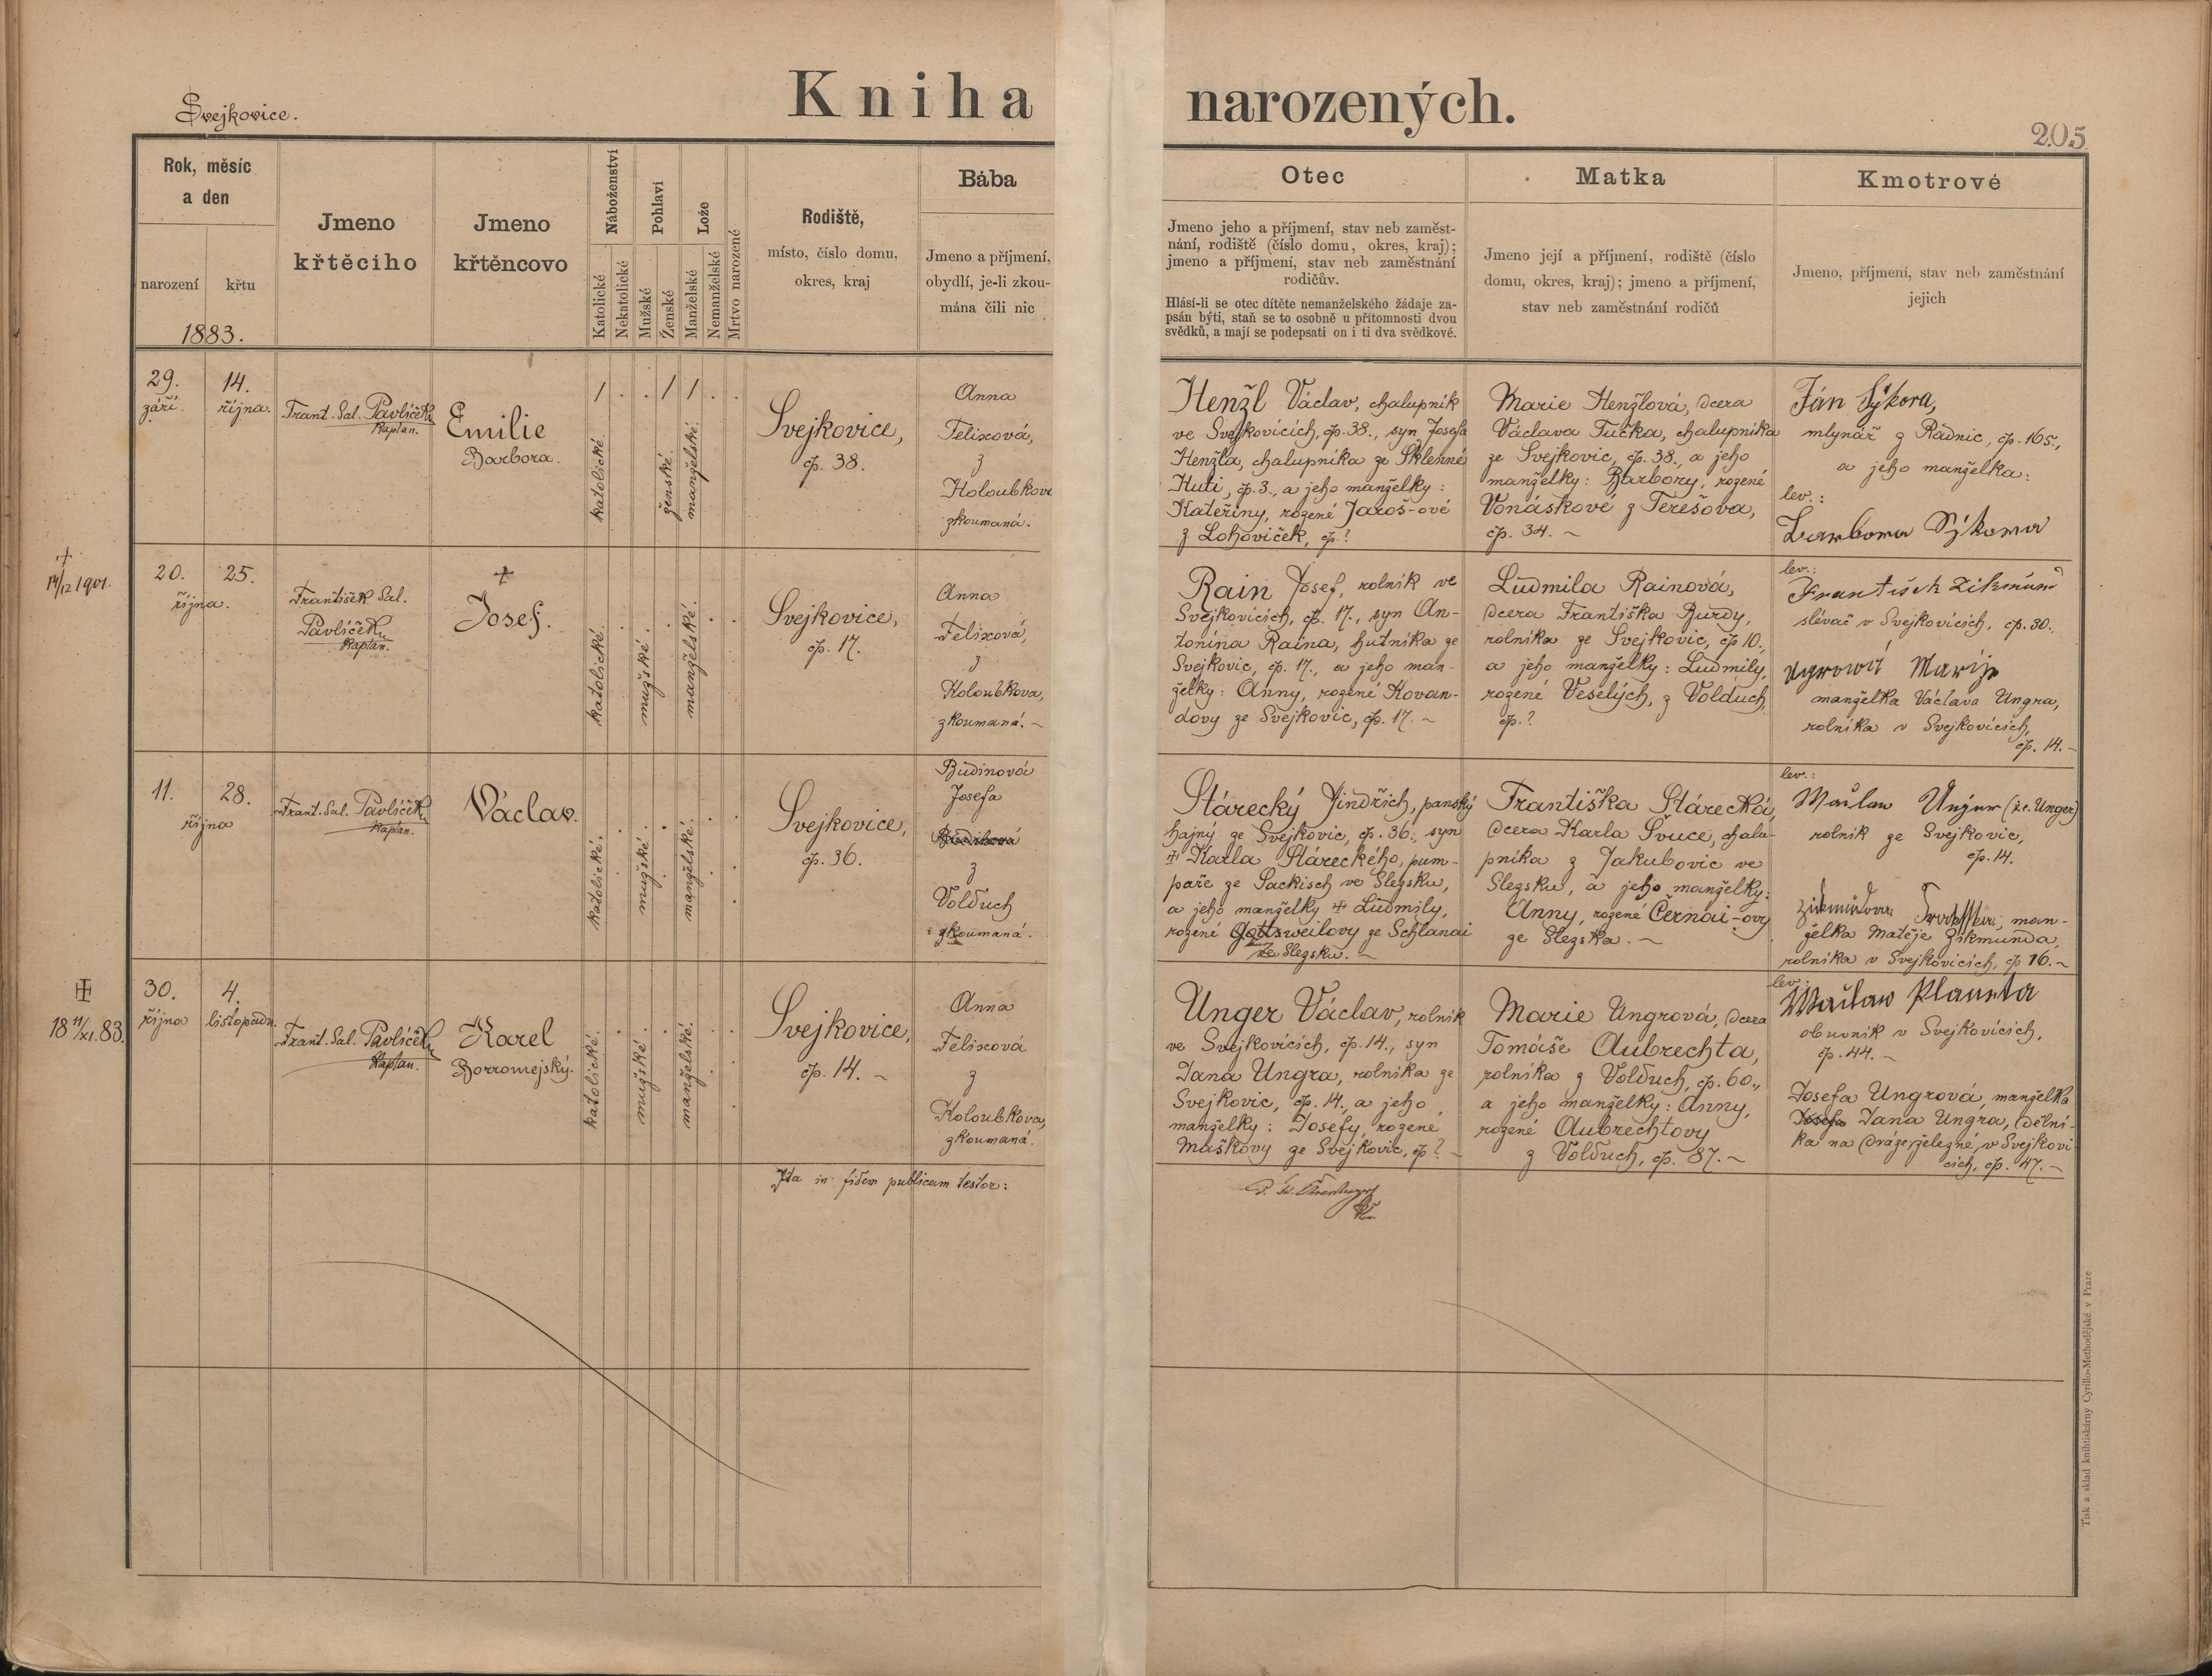 Svejkovice.
Kniha narozených.
205
Rok, měsíc
a den
narození
křtu
1883.
Jmeno
křtěcího
Jmeno
křtěncovo
Náboženství
Katolické
Nekatolické
Pohlaví
Mužské
Ženské
Lože
Manželské
Nemanželské
Mrtvo narozené
Rodiště,
místo, číslo domu,
okres, kraj
Bába
Jmeno a příjmení,
obydlí, je-li zkou-
mána čili nic
Otec
Jmeno jeho a příjmení, stav neb zaměst-
nání, rodiště (číslo domu, okres, kraj);
jmeno a příjmení, stav neb zaměstnání
rodičův.
Hlásí-li se otec dítěte nemanželského žádaje za-
psán býti, staň se to osobně u přítomnosti dvou
svědků, a mají se podepsati on i ti dva svědkové.
Matka
Jmeno její a příjmení, rodiště (číslo
domu, okres, kraj); jmeno a příjmení,
stav neb zaměstnání rodičů
Kmotrové
Jmeno, příjmení, stav neb zaměstnání
jejich
29.
září.
14.
října.
Frant. Sal. Pavlíček,
kaplan.
Emilie
Barbora.
katolické.
ženské.
manželské.
Svejkovice,
čp. 38.
Anna
Felixová,
z
Holoubkova
zkoumaná.
Henžl Václav, chalupník
ve Svejkovicích, čp. 38., syn Josefa
Henžla, chalupníka ze Sklenné
Huti, čp. 3., a jeho manželky:
Kateřiny, rozené Jaroš-ové
z Lohoviček, čp.?
Marie Henžlová, dcera
Václava Tučka, chalupníka
ze Svejkovic, čp. 38., a jeho
manželky: Barbory, rozené
Vonáskové z Terešova,
čp. 34. ~
Ján Sýkora,
mlynář z Radnic, čp. 165.,
a jeho manželka:
lev.:
Barbora Sýkora
+
14/12 1901.
20.
25.
října.
František Sal.
Pavlíček,
kaplan.
+
Josef.
katolické.
mužské.
manželské.
Svejkovice,
čp. 17.
Anna
Felixová,
z
Holoubkova,
zkoumaná. ~
Rain Josef, rolník ve
Svejkovicích, čp. 17., syn An-
tonína Raina, hutníka ze
Svejkovic, čp. 17., a jeho man-
želky: Anny, rozené Kovan-
dovy ze Svejkovic, čp. 17. ~
Ludmila Rainová,
dcera Františka Burdy,
rolníka ze Svejkovic, čp 10.,
a jeho manželky: Ludmily,
rozené Veselých, z Volduch,
čp.?
lev.:
František Zikmund
slévač v Svejkovicích, čp. 30.
Ugrová Marije
manželka Václava Ungra,
rolníka v Svejkovicích,
čp. 14. ~
11.
28.
října
Frant. Sal. Pavlíček,
kaplan.
Václav.
katolické.
mužské.
manželské.
Svejkovice,
čp. 36.
Budinová
Josefa
z
Volduch
zkoumaná.
Stárecký Jindřich, panský
hajný ze Svejkovic, čp. 36., syn
+ Karla Stáreckého, pum-
paře ze Sackisch ve Slezsku,
a jeho manželky + Ludmily,
rozené Gottsweilovy ze Schlanai
ve Slezsku. ~
Františka Stárecká,
dcera Karla Švuce, chalu-
pníka z Jakubovic ve
Slezsku, a jeho manželky:
Anny, rozené Černai-ovy
ze Slezska. ~
lev.:
Wáclaw Unger (t.c. Unger)
rolník ze Svejkovic,
čp. 14.
man-
želka Matěje Zikmunda,
rolníka v Svejkovicích, čp 16. ~
18 11/XI. 83.
30.
října
4.
listopadu.
Frant. Sal. Pavlíček,
kaplan.
Karel
Borromejský.
katolické.
mužské.
manželské.
Svejkovice,
čp. 14. ~
Anna
Felixová
z
Holoubkova,
zkoumaná.
Unger Václav, rolník
ve Svejkovicích, čp. 14., syn
Jana Ungra, rolníka ze
Svejkovic, čp. 14. a jeho
manželky: Josefy, rozené
Maškovy ze Svejkovic, čp? ~
Marie Ungrová, dcera
Tomáše Aubrechta,
rolníka z Volduch, čp. 60.,
a jeho manželky: Anny,
rozené Aubrechtovy
z Volduch, čp. 87. ~
lev.:
Wáclaw Planeta
obuvník v Svejkovicích,
čp. 44. ~
Josefa Ungrová, manželka
Josefa Jana Ungra, dělní-
ka na dráze železné, v Svejkovi-
cích, čp. 47. ~
Ita in fidem publicam testor:
Tisk a sklad knihtiskárny Cyrillo-Methodějské v Praze